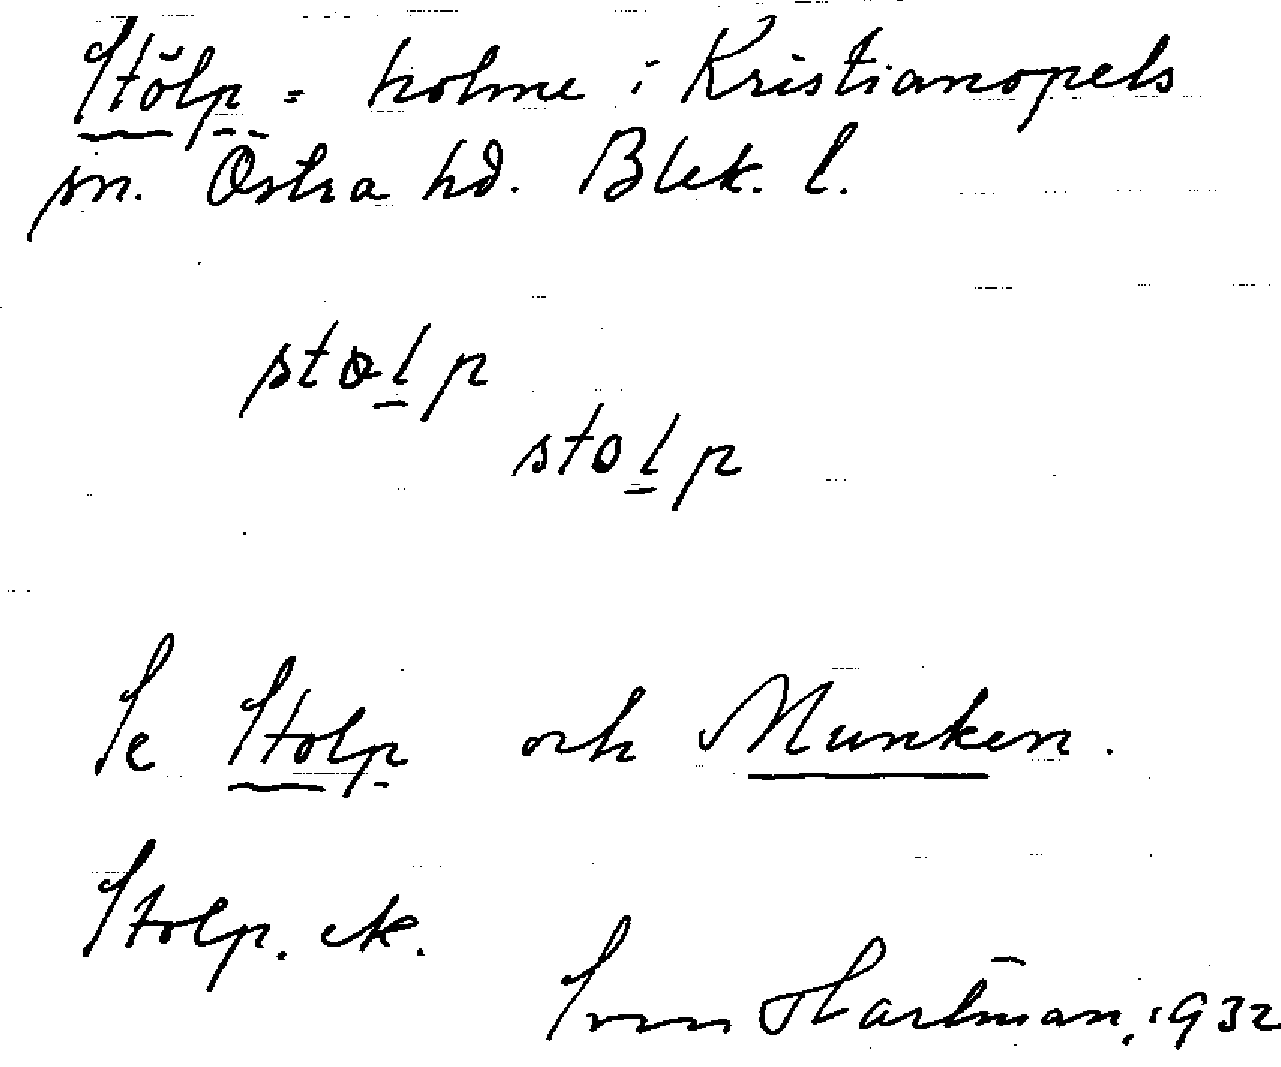 Stölp = holme i Kristianopels
sn. Östra hd. Blek. l.
stɵlp
stolp
Se Stolp och Munken.
Stolp. ek.
Sven Hartman, 1932